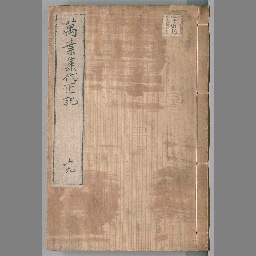 萬葉集代匠記
十九